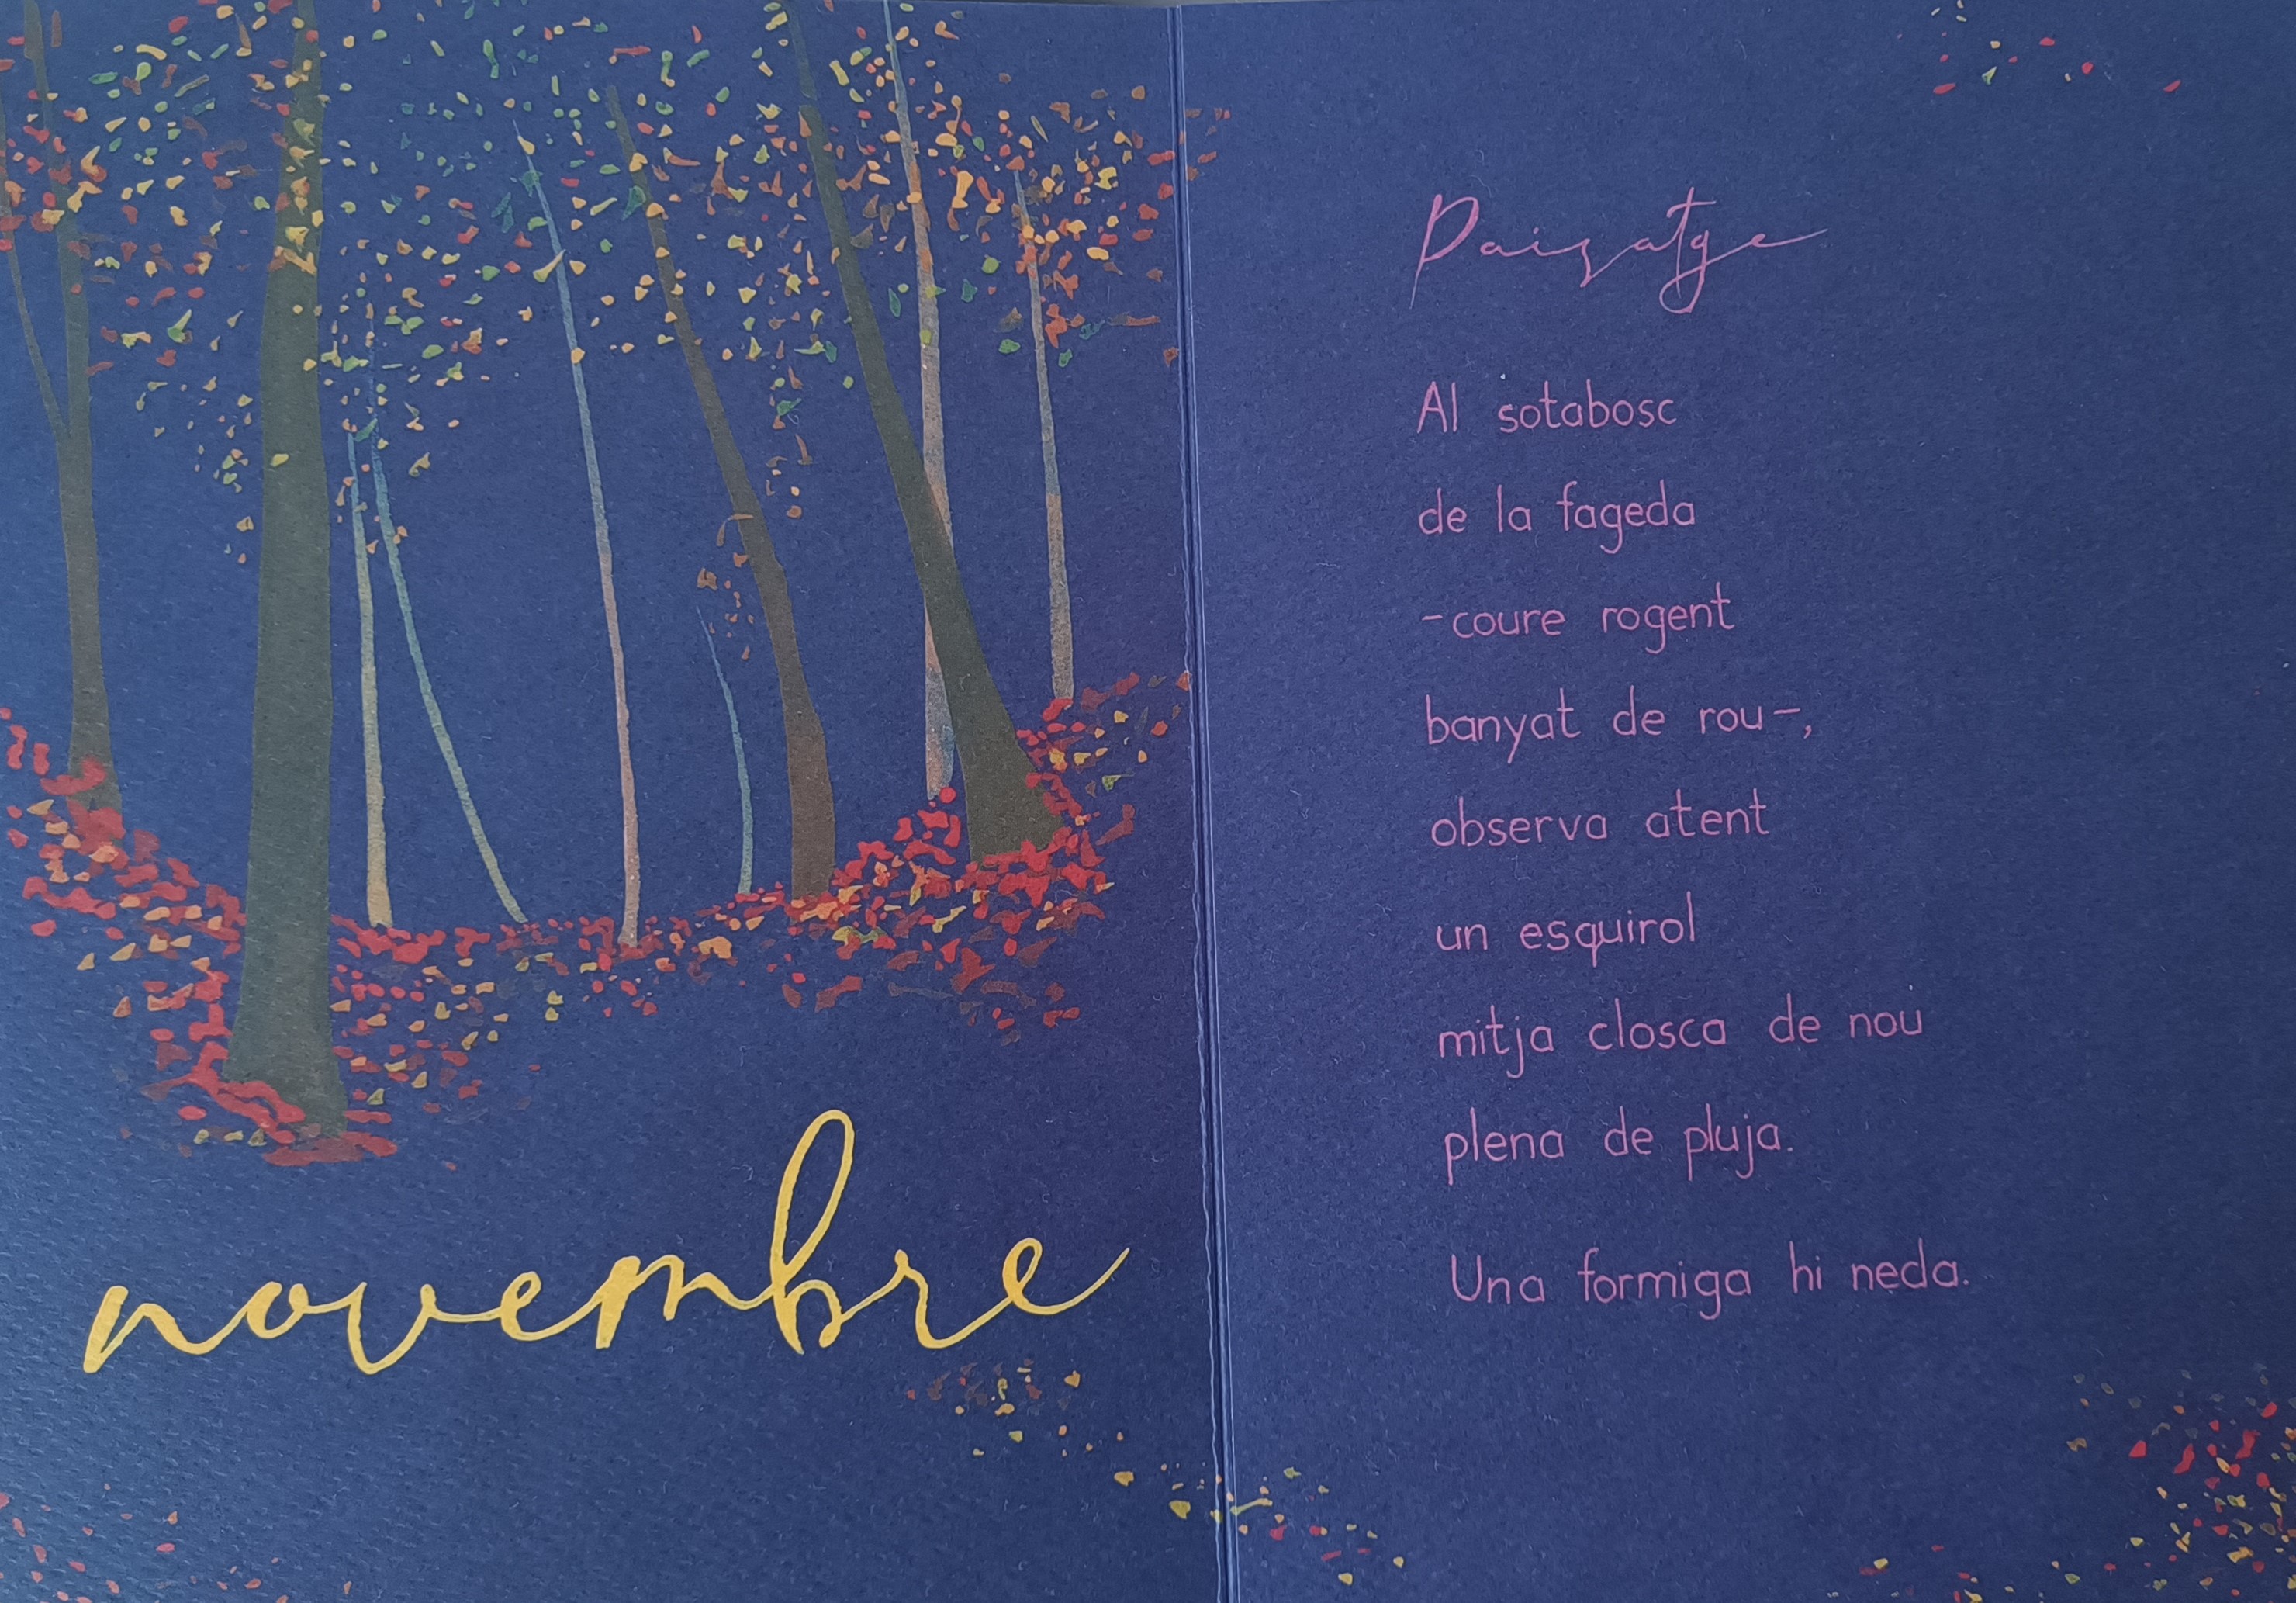 novembre
Paisatge
Al sotabosc
de la fageda
-coure rogent
banyat de rou-,
observa atent
un esquirol
mitja closca de nou
plena de pluja.
Una formiga hi neda.